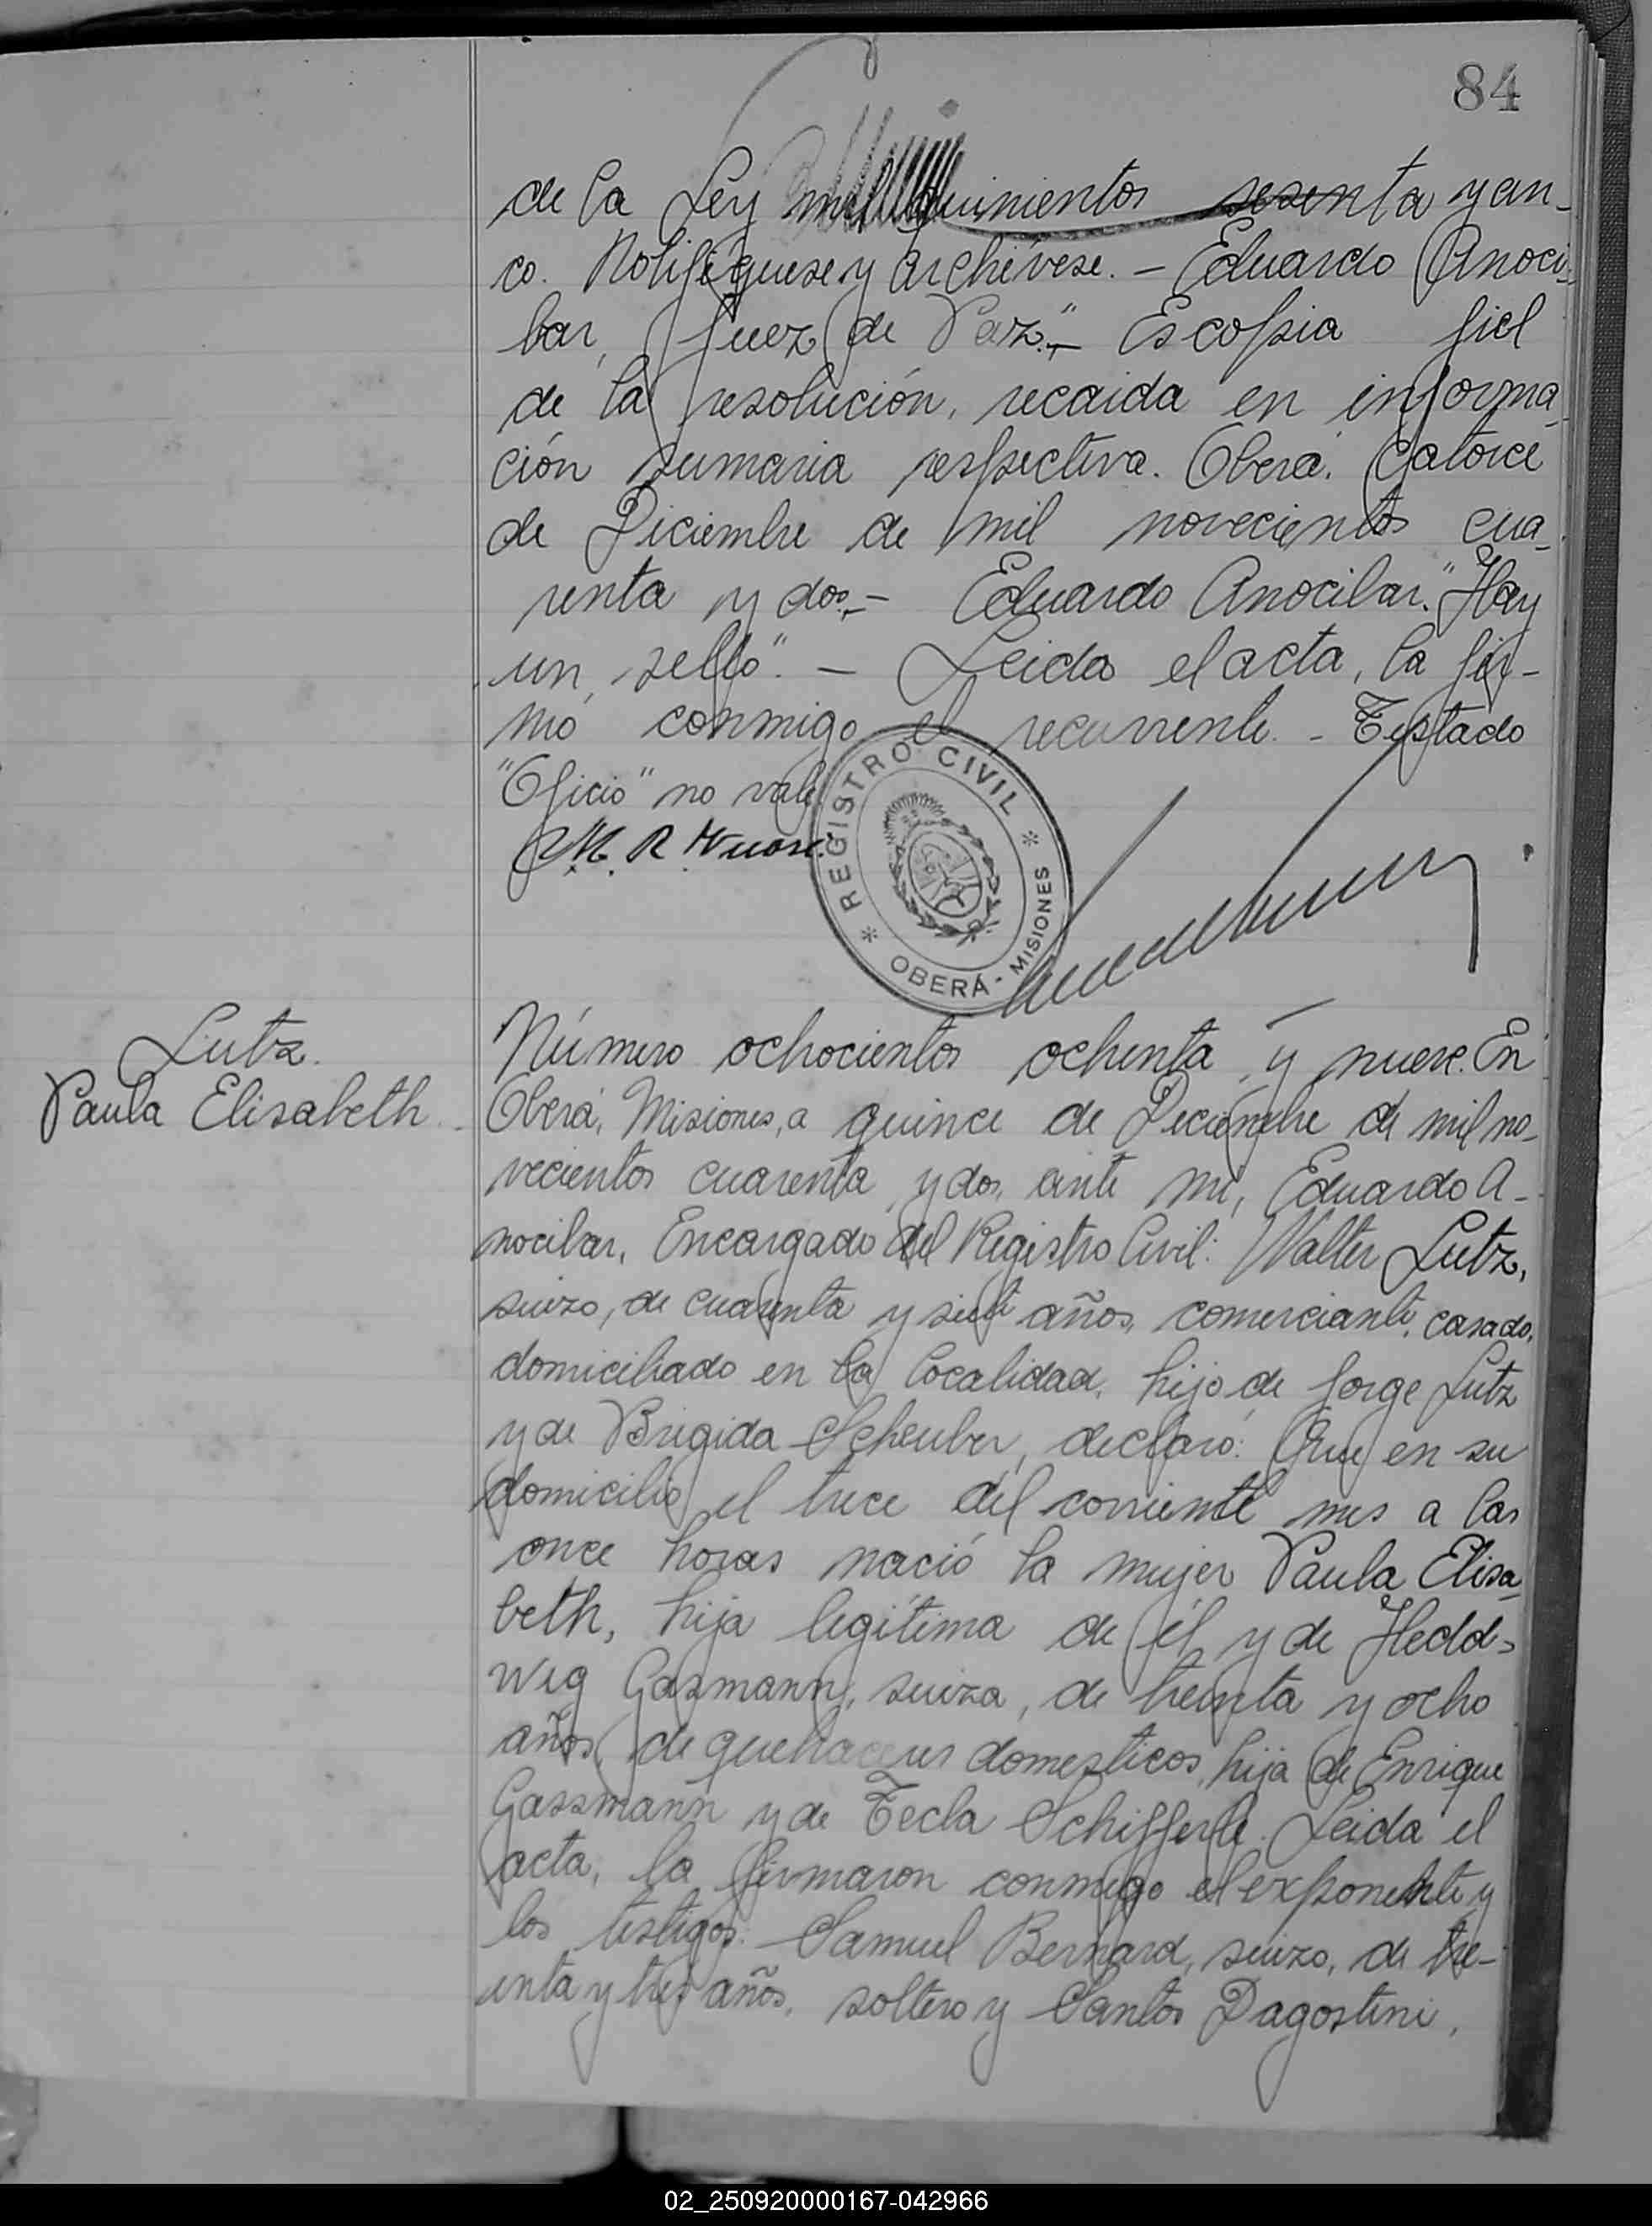 84
de la Ley mil quinientos sesenta y cin-
co. Notifíquese y archívese. - Eduardo Anoci-
bar, Juez de Paz." - Es copia fiel
de la resolución, recaida en informa-
ción sumaria respectiva. Oberá, Catorce
de Diciembre de mil novecientos cua-
renta y dos. - Eduardo Anocibar. "Hay
un sello". - Leida el acta, la fir-
mó conmigo el recurrente. - Testado
"Oficio" no vale.
M. R.
REGISTRO CIVIL
OBERÁ - MISIONES
Lutz.
Paula Elisabeth.
Número ochocientos ochenta y nueve. En
Oberá, Misiones, a quince de Diciembre de mil no-
vecientos cuarenta y dos, ante mi, Eduardo A-
nocibar, Encargado del Registro Civil: Walter Lutz,
suizo, de cuarenta y siete años, comerciante, casado,
domiciliado en la localidad, hijo de Jorge Lutz
y de Brigida Scheuber, declaró: Que en su
domicilio el trece del corriente mes a las
once horas nació la mujer Paula Elisa-
beth, hija legítima de él y de Hedd-
wig Gasmann, suiza, de treinta y ocho
años, de quehaceres domesticos, hija de Enrique
Gassmann y de Tecla Schifferle. Leida el
acta, la firmaron conmigo el exponente y
los testigos: Samuel Bernard, suizo, de tre-
inta y tres años, soltero y Santos Dagostini,
02_250920000167-042966